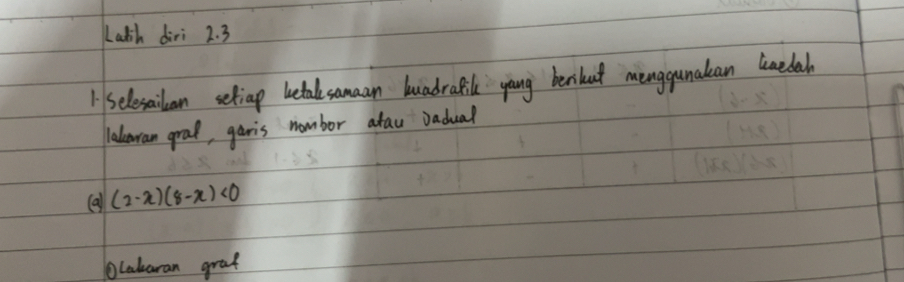 Latih diri 2.3
1. Selesaikan setiap ketaksamaan kuadratik yang berikut menggunakan kaedah
lakaran graf, garis nombor atau Jadual
(a) (2-x)(8-x)<0
① Lakaran graf